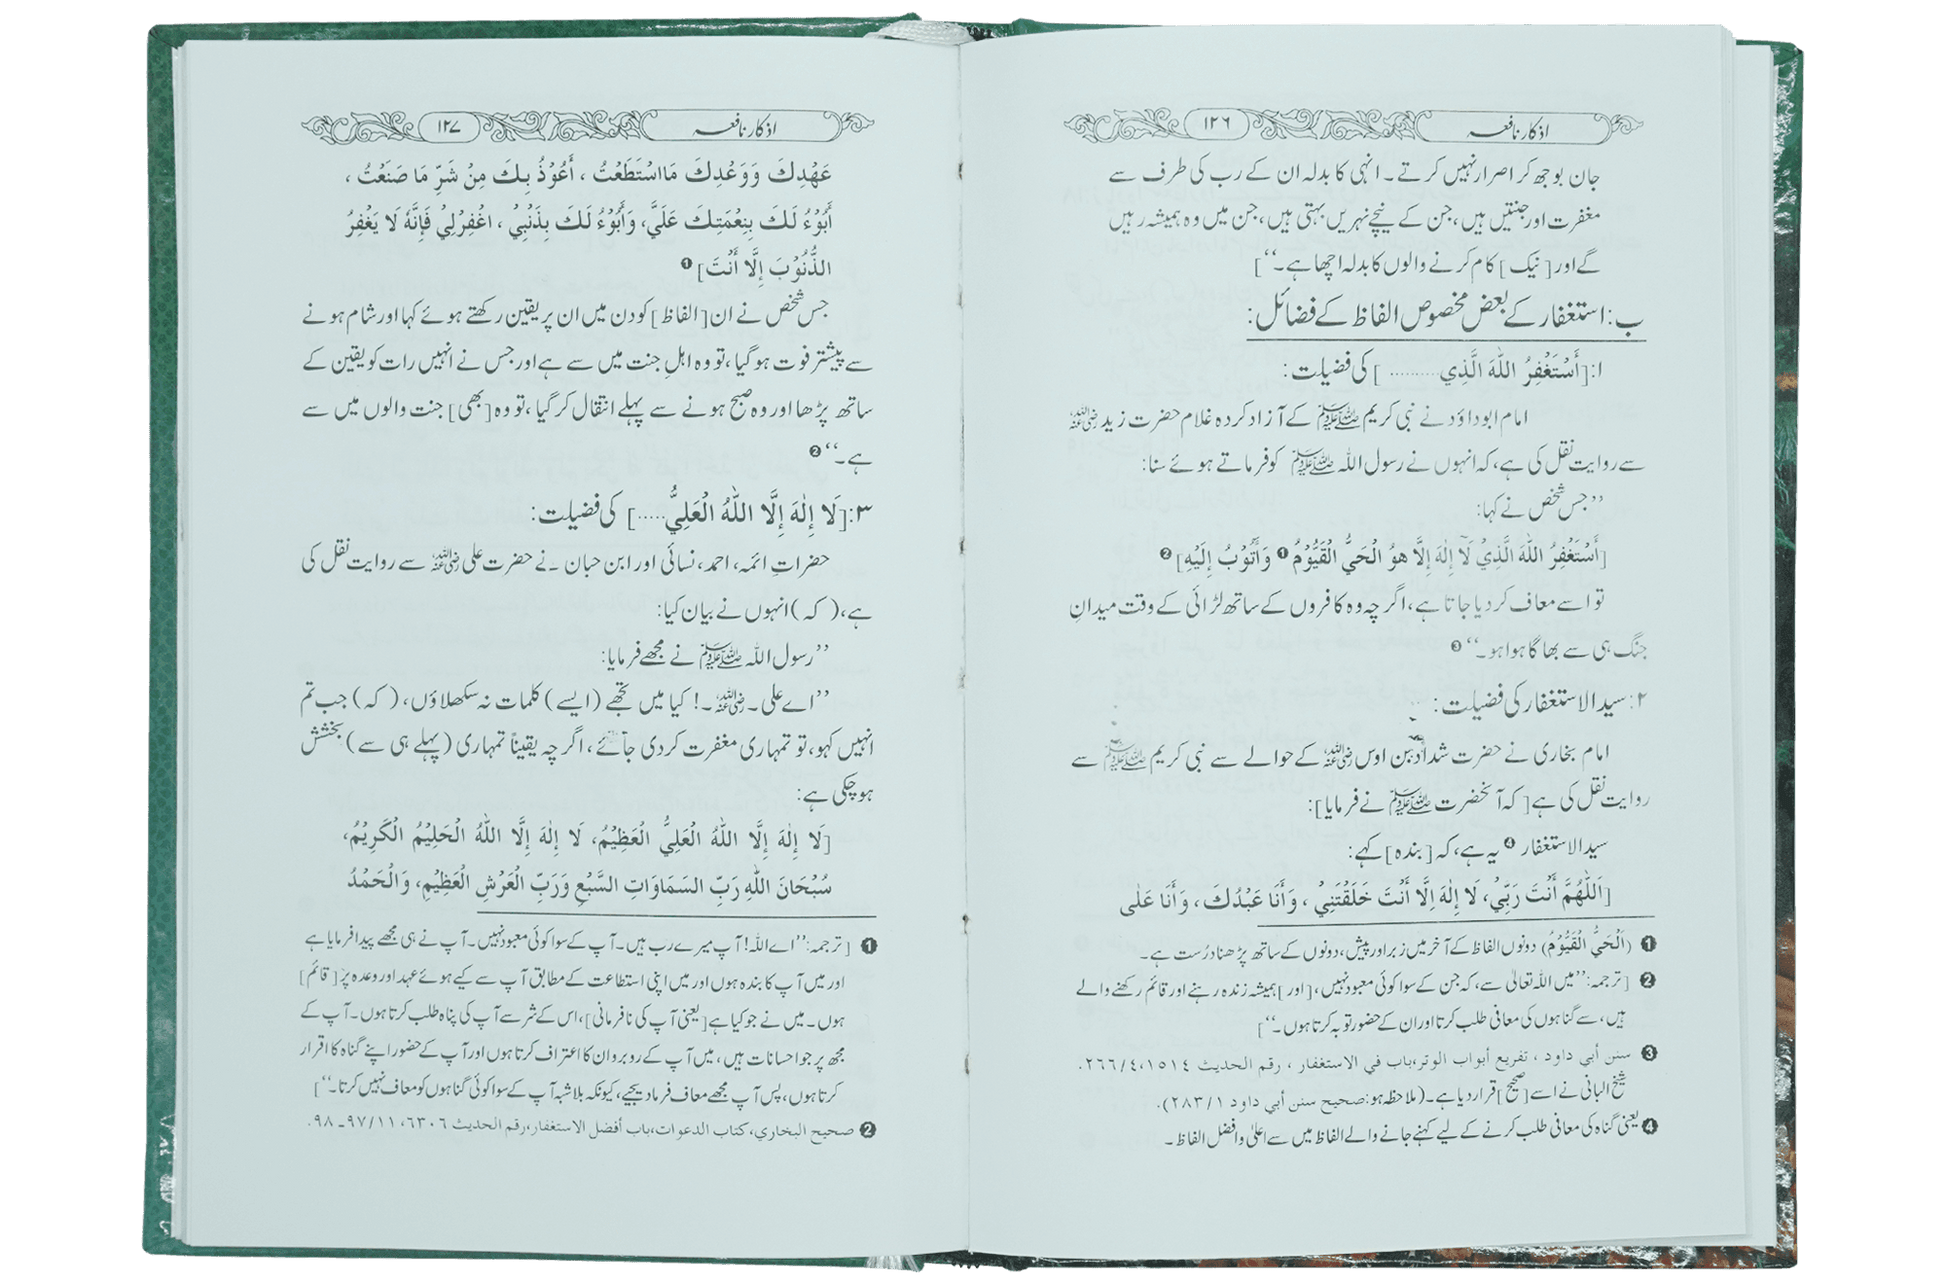 اذکار نافعہ
۱۲۶
جان بوجھ کر اصرار نہیں کرتے۔ انہی کا بدلہ ان کے رب کی طرف سے
مغفرت اور جنتیں ہیں، جن کے نیچے نہریں بہتی ہیں، جن میں وہ ہمیشہ رہیں
گے اور [نیک] کام کرنے والوں کا بدلہ اچھا ہے۔‘‘]
ب: استغفار کے بعض مخصوص الفاظ کے فضائل:
۱: [أَسْتَغْفِرُ اللّٰهَ الَّذِي ..........] کی فضیلت:
امام ابوداؤد نے نبی کریم ﷺ کے آزاد کردہ غلام حضرت زید رضی اللہ عنہ
سے روایت نقل کی ہے، کہ انہوں نے رسول اللہ ﷺ کو فرماتے ہوئے سنا:
’’جس شخص نے کہا:
[أَسْتَغْفِرُ اللّٰهَ الَّذِيْ لَآ إِلٰهَ إِلَّا هوُ الْحَيُّ الْقَيُّوْمُ ❶ وَأَتُوْبُ إِلَيْهِ] ❷
تو اسے معاف کر دیا جاتا ہے، اگرچہ وہ کافروں کے ساتھ لڑائی کے وقت میدانِ
جنگ ہی سے بھاگا ہوا ہو۔‘‘ ❸
۲: سید الاستغفار کی فضیلت:
امام بخاری نے حضرت شداد بن اوس رضی اللہ عنہ کے حوالے سے نبی کریم ﷺ سے
روایت نقل کی ہے [کہ آنحضرت ﷺ نے فرمایا]:
سید الاستغفار ❹ یہ ہے، کہ [بندہ] کہے:
[اَللّٰهُمَّ أَنْتَ رَبِّيْ، لَا إِلٰهَ إِلَّا أَنْتَ خَلَقْتَنِيْ، وَأَنَا عَبْدُكَ، وَأَنَا عَلٰى
❶ (اَلْحَيُّ الْقَيُّوْمُ) دونوں الفاظ کے آخر میں زبر اور پیش، دونوں کے ساتھ پڑھنا درُست ہے۔
❷ [ترجمہ: ’’میں اللہ تعالیٰ سے، کہ جن کے سوا کوئی معبود نہیں، [اور] ہمیشہ زندہ رہنے اور قائم رکھنے والے
ہیں، سے گناہوں کی معافی طلب کرتا اور ان کے حضور توبہ کرتا ہوں۔‘‘]
❸ سنن أبي داود، تفريع أبواب الوتر، باب في الاستغفار، رقم الحديث ١٥١٤، ٢٦٦/٤.
شیخ البانی نے اسے [صحیح] قرار دیا ہے۔ (ملاحظہ ہو: صحيح سنن أبي داود ٢٨٣/١).
❹ یعنی گناہ کی معافی طلب کرنے کے لیے کہنے جانے والے الفاظ میں سے اعلیٰ وافضل الفاظ۔
اذکار نافعہ
۱۲۷
عَهْدِكَ وَوَعْدِكَ مَا اسْتَطَعْتُ، أَعُوْذُ بِكَ مِنْ شَرِّ مَا صَنَعْتُ،
أَبُوْءُ لَكَ بِنِعْمَتِكَ عَلَيَّ، وَأَبُوْءُ لَكَ بِذَنْبِيْ، اغْفِرْلِيْ فَإِنَّهُ لَا يَغْفِرُ
الذُّنُوْبَ إِلَّا أَنْتَ] ❶
جس شخص نے ان [الفاظ] کو دن میں ان پر یقین رکھتے ہوئے کہا اور شام ہونے
سے پیشتر فوت ہو گیا، تو وہ اہلِ جنت میں سے ہے اور جس نے انہیں رات کو یقین کے
ساتھ پڑھا اور وہ صبح ہونے سے پہلے انتقال کر گیا، تو وہ [بھی] جنت والوں میں سے
ہے۔‘‘ ❷
۳: [لَا إِلٰهَ إِلَّا اللّٰهُ الْعَلِيُّ.....] کی فضیلت:
حضراتِ ائمہ، احمد، نسائی اور ابن حبان نے حضرت علی رضی اللہ عنہ سے روایت نقل کی
ہے، (کہ) انہوں نے بیان کیا:
’’رسول اللہ ﷺ نے مجھے فرمایا:
’’اے علی۔ رضی اللہ عنہ۔! کیا میں تجھے (ایسے) کلمات نہ سکھلاؤں، (کہ) جب تم
انہیں کہو، تو تمہاری مغفرت کر دی جائے، اگرچہ یقیناً تمہاری (پہلے ہی سے) بخشش
ہو چکی ہے:
[لَا إِلٰهَ إِلَّا اللّٰهُ الْعَلِيُّ الْعَظِيْمُ، لَا إِلٰهَ إِلَّا اللّٰهُ الْحَلِيْمُ الْكَرِيْمُ،
سُبْحَانَ اللّٰهِ رَبِّ السَمَاوَاتِ السَّبْعِ وَرَبِّ الْعَرْشِ الْعَظِيْمِ، وَالْحَمْدُ
❶ [ترجمہ: ’’اے اللہ! آپ میرے رب ہیں۔ آپ کے سوا کوئی معبود نہیں۔ آپ نے ہی مجھے پیدا فرمایا ہے
اور میں آپ کا بندہ ہوں اور میں اپنی استطاعت کے مطابق آپ سے کیے ہوئے عہد اور وعدہ پر [قائم]
ہوں۔ میں نے جو کیا ہے [یعنی آپ کی نافرمانی]، اس کے شر سے آپ کی پناہ طلب کرتا ہوں۔ آپ کے
مجھ پر جو احسانات ہیں، میں آپ کے روبرو ان کا اعتراف کرتا ہوں اور آپ کے حضور اپنے گناہ کا اقرار
کرتا ہوں، پس آپ مجھے معاف فرما دیجیے، کیونکہ بلاشبہ آپ کے سوا کوئی گناہوں کو معاف نہیں کرتا۔‘‘]
❷ صحيح البخاري، كتاب الدعوات، باب أفضل الاستغفار، رقم الحديث ٦٣٠٦، ٩٧/١١-٩٨.